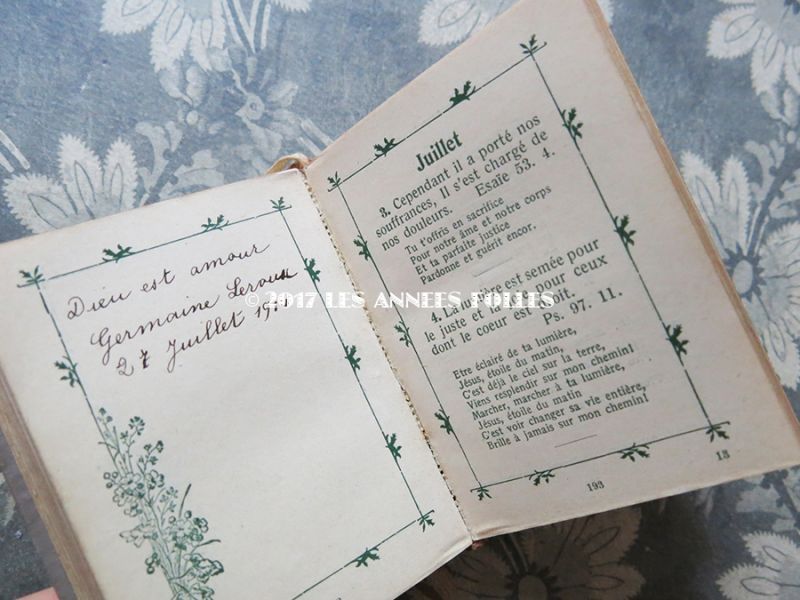 Dieu est amour
Germaine Leroux
27 Juillet 19
© 2017 LES ANNEES FOLLES
Juillet
3. Cependant il a porté nos
souffrances, Il s'est chargé de
nos douleurs. Esaïe 53. 4.
Tu t'offris en sacrifice
Pour notre âme et notre corps
Et ta parfaite justice
Pardonne et guérit encor.
4. La lumière est semée pour
le juste et la joie pour ceux
dont le coeur est droit.
Ps. 97. 11.
Etre éclairé de ta lumière,
Jésus, étoile du matin,
C'est déjà le ciel sur la terre,
Viens resplendir sur mon chemin!
Marcher, marcher à ta lumière,
Jésus, étoile du matin
C'est voir changer sa vie entière,
Brille à jamais sur mon chemin!
193
13